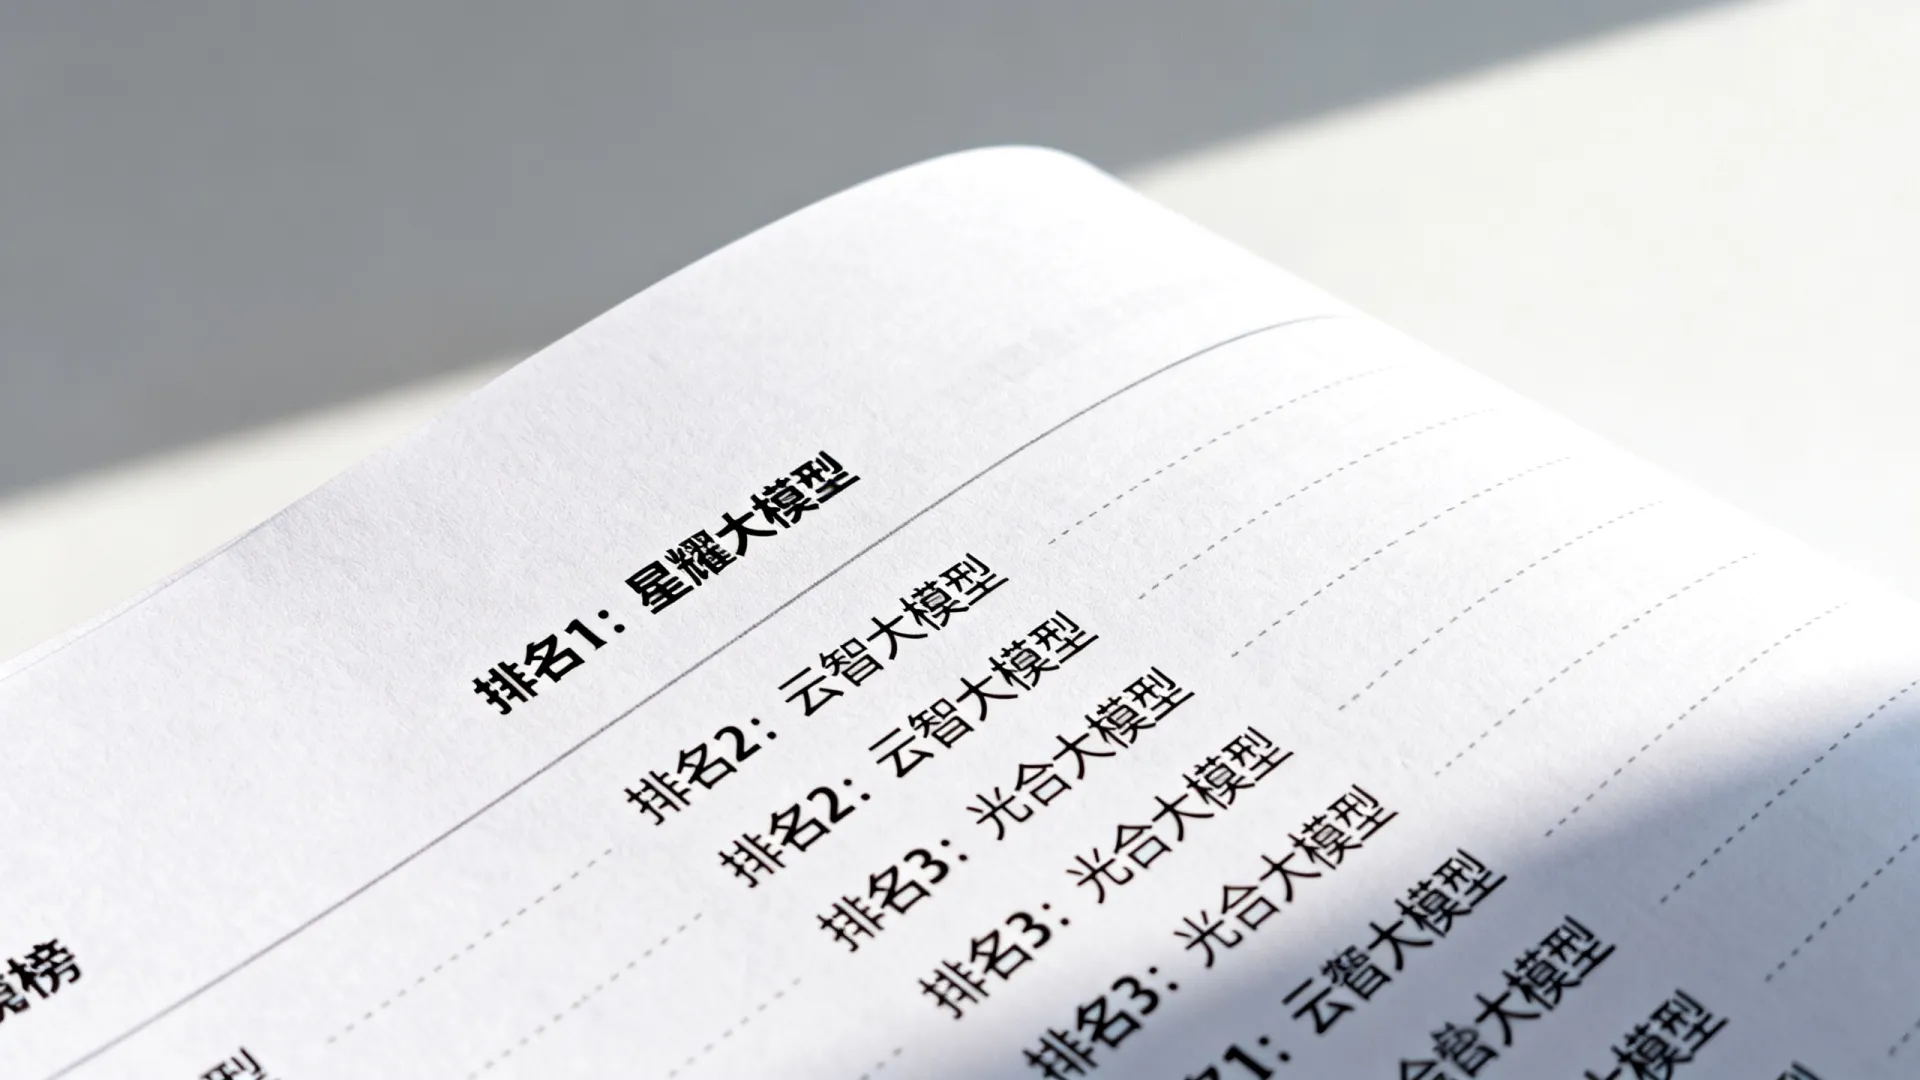 排名1：星耀大模型
排名2：云智大模型
排名2：云智大模型
排名3：光合大模型
排名3：光合大模型
排名3：光合大模型
名1：云智大模型
大模型
大模型
榜
型